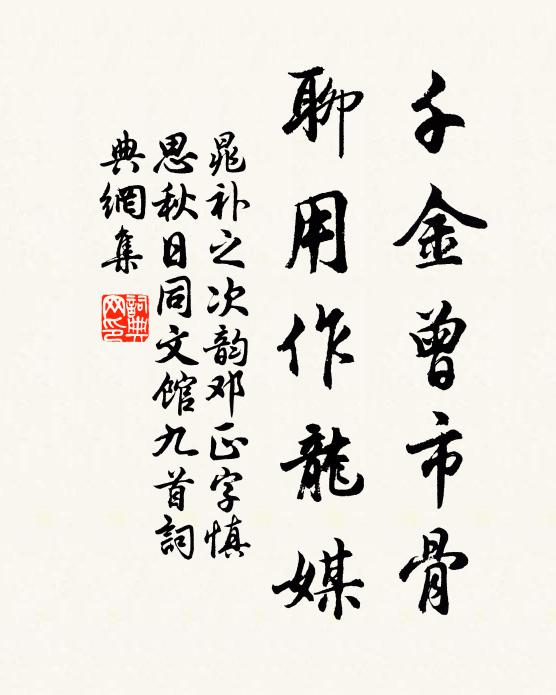 千金曾市骨
聊用作龍媒
晁补之次韵邓正字慎
思秋日同文館九首詞
典網集
詞典网印